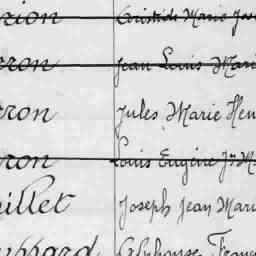 rion Aristide Marie Jose
rron Jean Louis Mari
rron Jules Marie Hen
rron Louis Eugène Jn M
illet Joseph Jean Mari
ppard Alphonse Franç